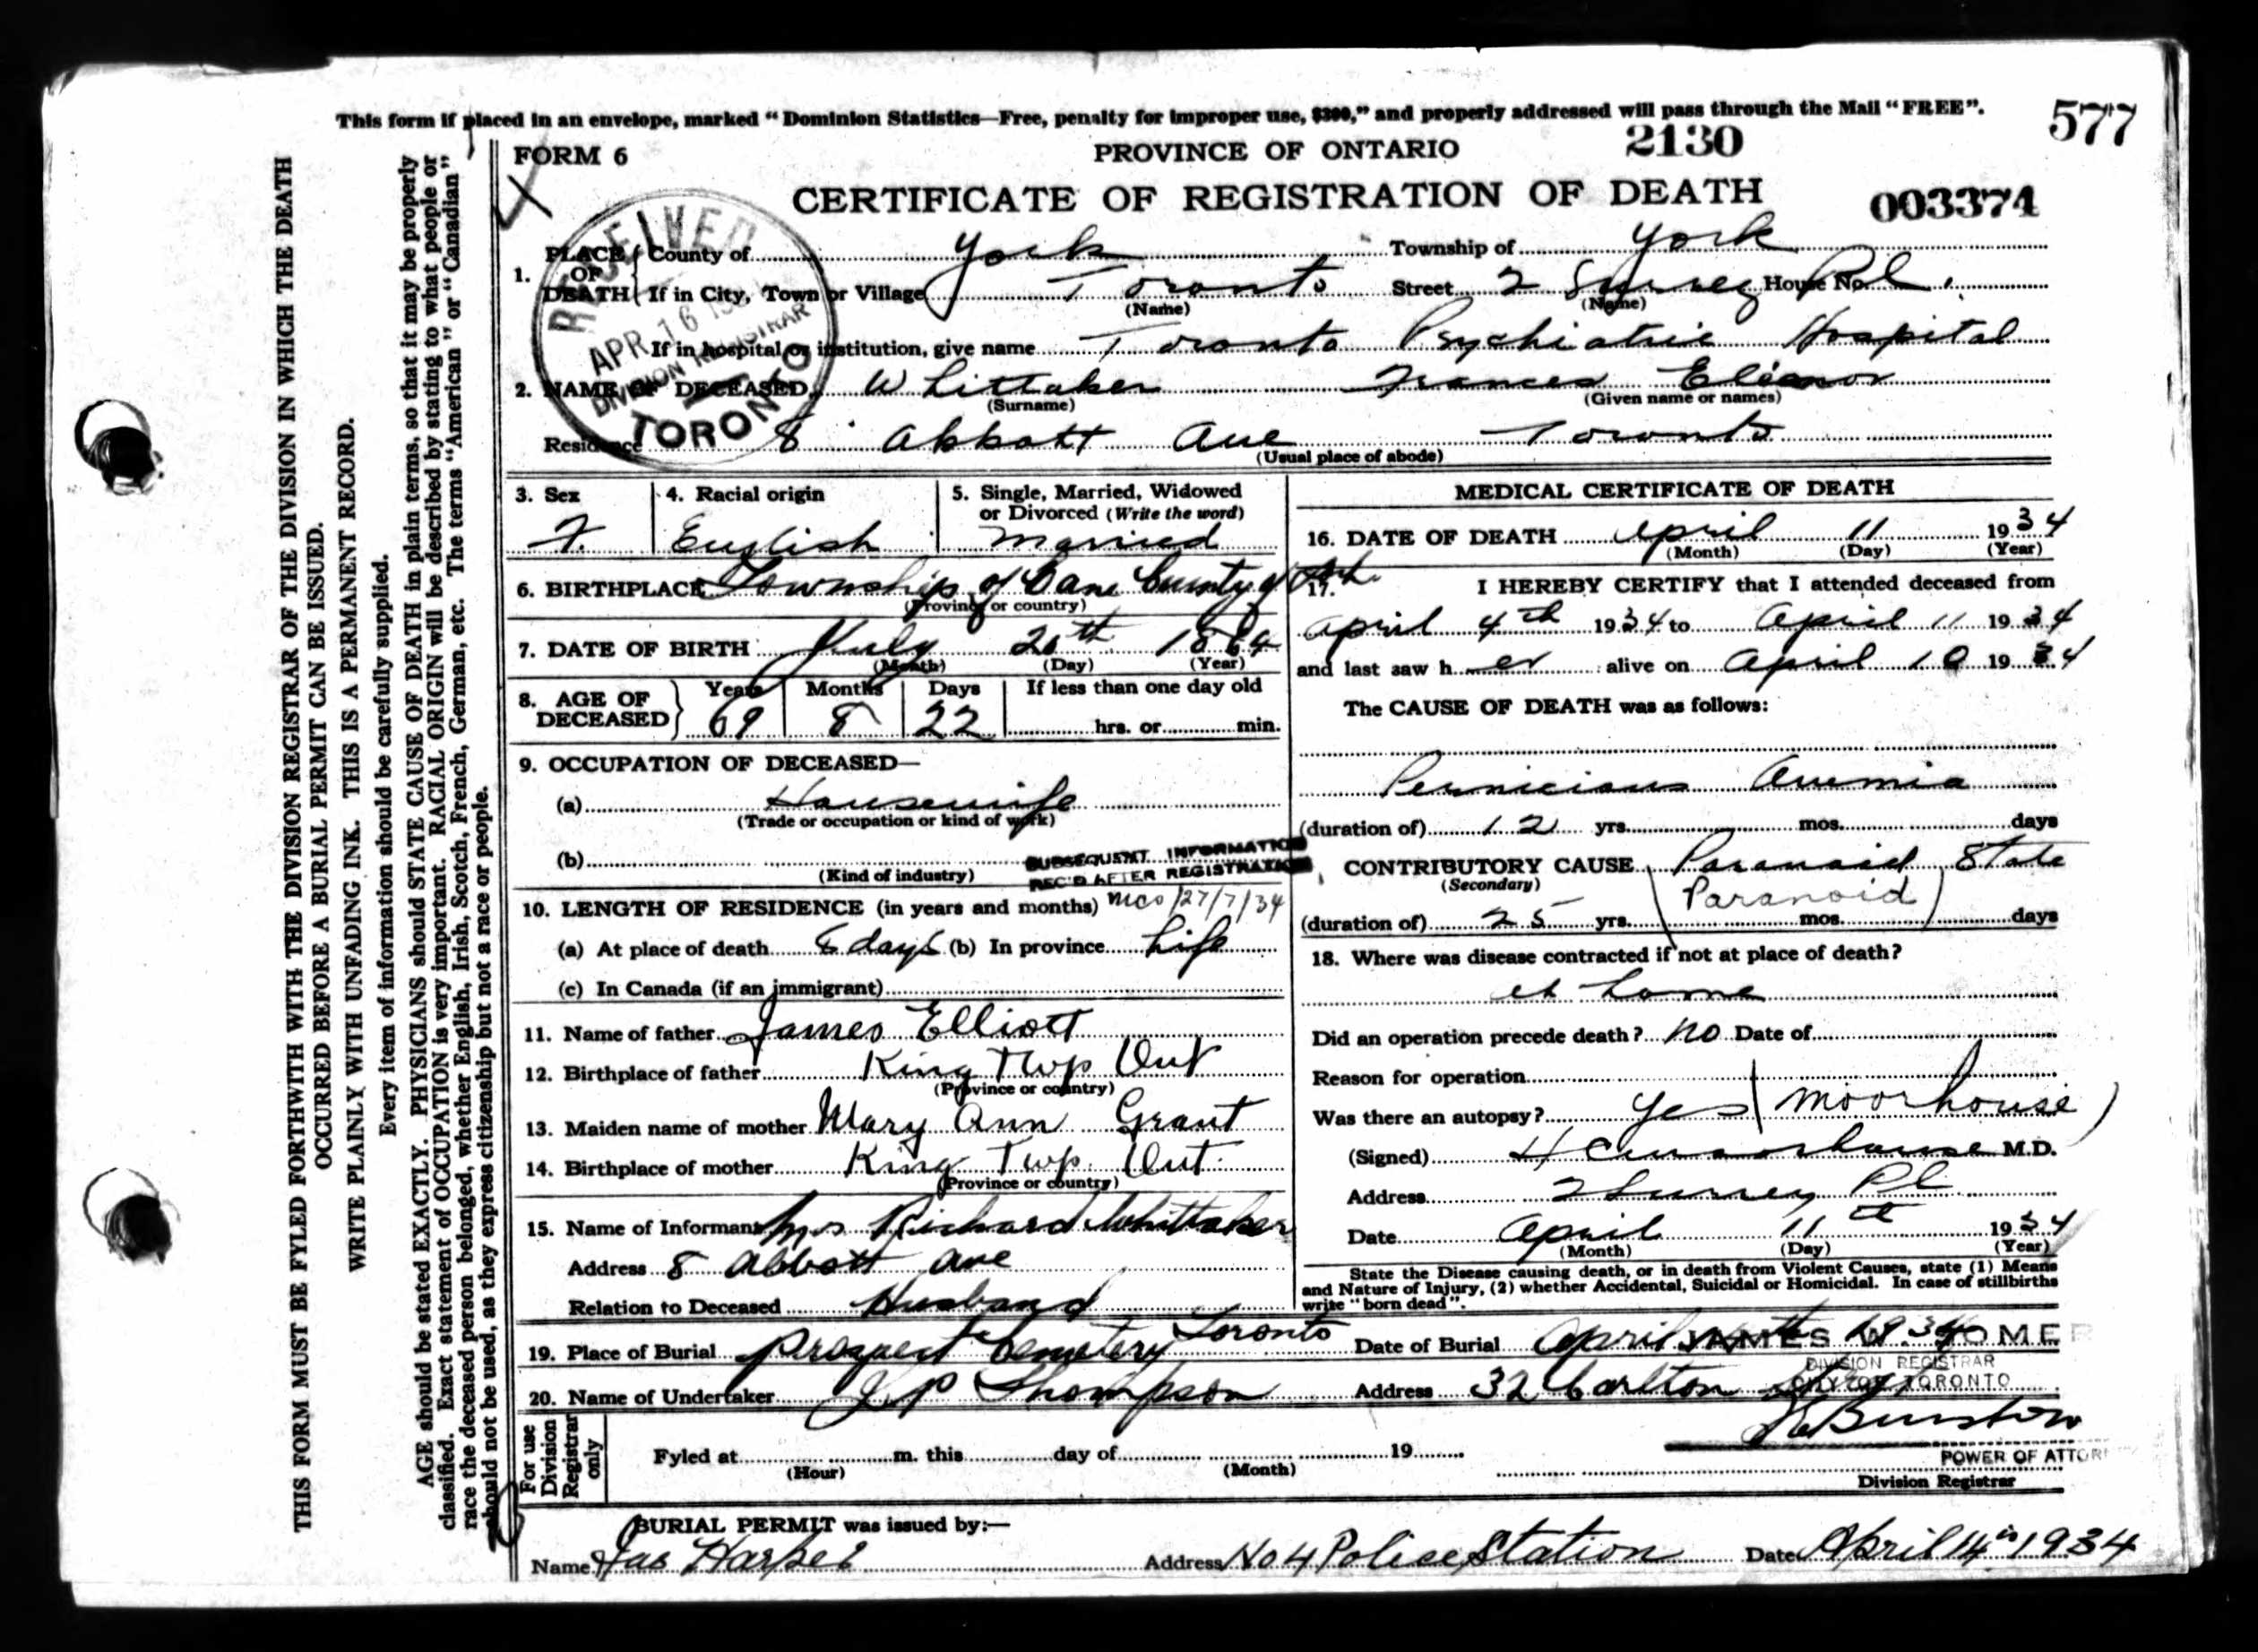 This form if placed in an envelope, marked “Dominion Statistics—Free, penalty for improper use, $300,” and properly addressed will pass through the Mail “FREE”.
577
FORM 6
PROVINCE OF ONTARIO
2130
CERTIFICATE OF REGISTRATION OF DEATH
003374
RECEIVED
APR 16
DIVISION REGISTRAR
TORONTO
1. PLACE OF DEATH { County of York Township of York
If in City, Town or Village Toronto Street 2 Surrey House No. Pl.
(Name) (Name)
If in hospital or institution, give name Toronto Psychiatric Hospital
2. NAME OF DECEASED Whittaker Frances Eleanor
(Surname) (Given name or names)
Residence 8 Abbott Ave Toronto
(Usual place of abode)
3. Sex
F.
4. Racial origin
English
5. Single, Married, Widowed or Divorced (Write the word)
Married
6. BIRTHPLACE Township of County of York
(Province or country)
7. DATE OF BIRTH July 20th 1864
(Month) (Day) (Year)
8. AGE OF DECEASED } Years Months Days If less than one day old
69 8 22 hrs. or min.
9. OCCUPATION OF DECEASED—
(a) Housewife
(Trade or occupation or kind of work)
(b)
(Kind of industry)
SUBSEQUENT INFORMATION
REC'D AFTER REGISTRATION
10. LENGTH OF RESIDENCE (in years and months) 27/7/34
(a) At place of death days (b) In province Life
(c) In Canada (if an immigrant)
11. Name of father James Elliott
12. Birthplace of father King Twp Ont
(Province or country)
13. Maiden name of mother Mary Ann Grant
14. Birthplace of mother King Twp. Ont.
(Province or country)
15. Name of Informant Richard Whittaker
Address 8 Abbott Ave
Relation to Deceased Husband
MEDICAL CERTIFICATE OF DEATH
16. DATE OF DEATH April 11 1934
(Month) (Day) (Year)
17. I HEREBY CERTIFY that I attended deceased from
April 4th 1934 to April 11 1934
and last saw her alive on April 10 1934
The CAUSE OF DEATH was as follows:
Pernicious Anemia
(duration of) 12 yrs. mos. days
CONTRIBUTORY CAUSE Paranoid State
(Secondary)
(Paranoid)
(duration of) 25 yrs. mos. days
18. Where was disease contracted if not at place of death?
at home
Did an operation precede death? No Date of
Reason for operation
Was there an autopsy? yes (Moorhouse)
(Signed) H C Moorhouse M.D.
Address 2 Surrey Pl
Date April 11th 1934
(Month) (Day) (Year)
State the Disease causing death, or in death from Violent Causes, state (1) Means and Nature of Injury, (2) whether Accidental, Suicidal or Homicidal. In case of stillbirths write “born dead”.
19. Place of Burial Prospect Cemetery Toronto Date of Burial April 1934
JAMES W. SOMER
DIVISION REGISTRAR
CITY OF TORONTO
20. Name of Undertaker J P Thompson Address 32 Carlton
For use Division Registrar only
Fyled at m. this day of 19
(Hour) (Month)
POWER OF ATTOR
Division Registrar
BURIAL PERMIT was issued by:—
Name Jas Harper Address No 4 Police Station Date April 14th 1934
THIS FORM MUST BE FYLED FORTHWITH WITH THE DIVISION REGISTRAR OF THE DIVISION IN WHICH THE DEATH
OCCURRED BEFORE A BURIAL PERMIT CAN BE ISSUED.
WRITE PLAINLY WITH UNFADING INK. THIS IS A PERMANENT RECORD.
Every item of information should be carefully supplied.
AGE should be stated EXACTLY. PHYSICIANS should STATE CAUSE OF DEATH in plain terms, so that it may be properly
classified. Exact statement of OCCUPATION is very important. RACIAL ORIGIN will be described by stating to what people or
race the deceased person belonged, whether English, Irish, Scotch, French, German, etc. The terms “American” or “Canadian”
should not be used, as they express citizenship but not a race or people.